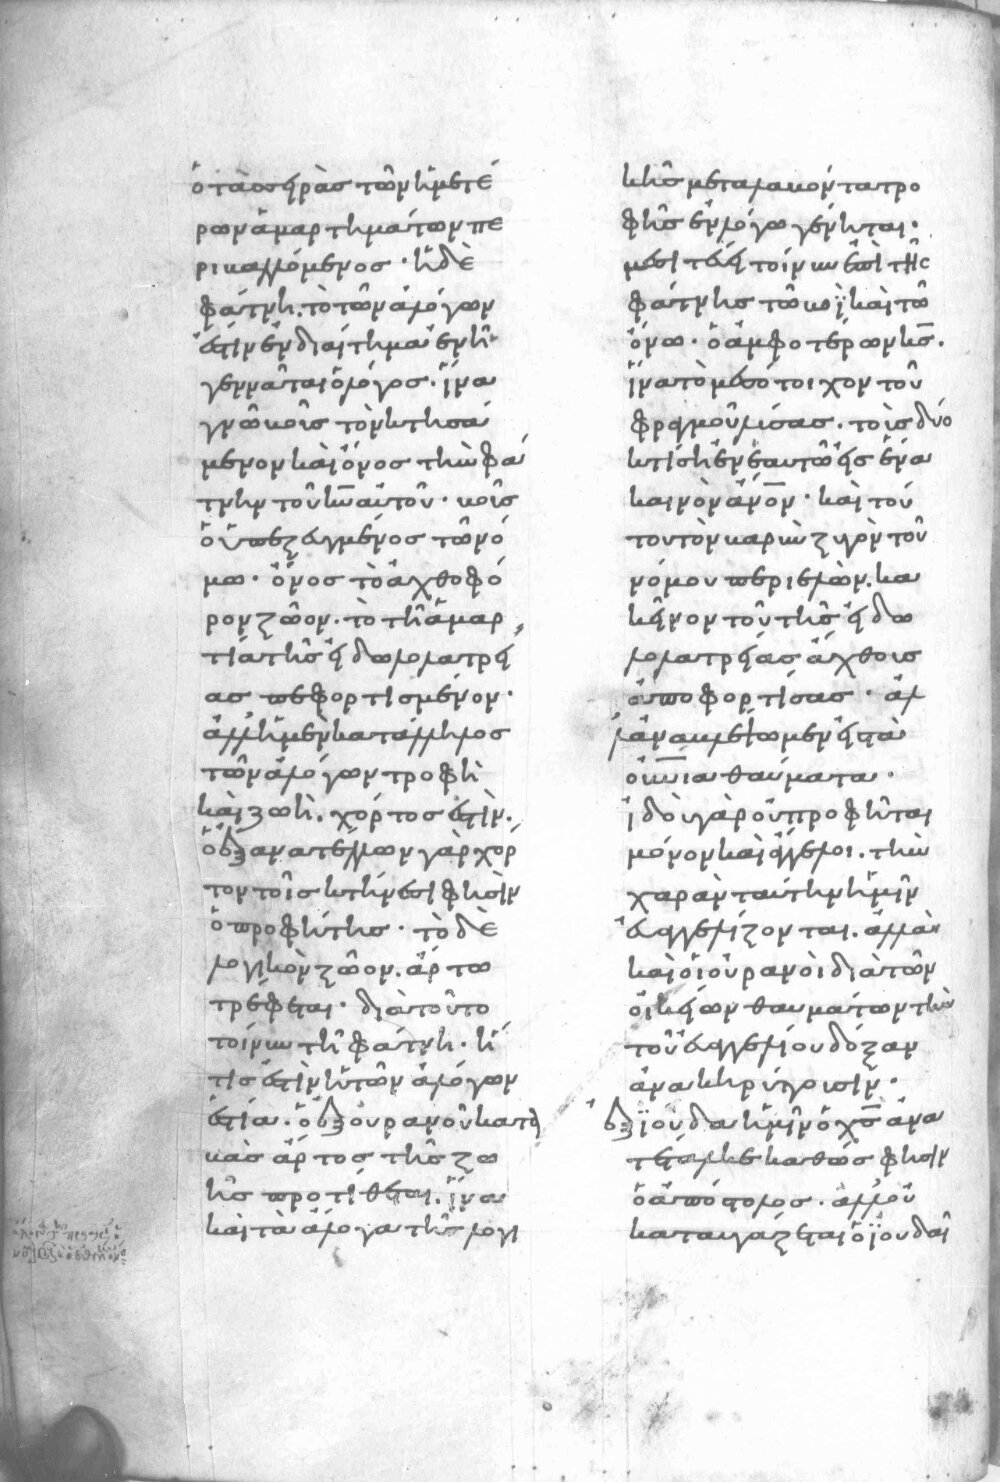 ὁ τὰς σειρὰς τῶν ἡμετέ
ρων ἁμαρτημάτων πε
ρικαλλόμενος · ἡ δὲ
φάτνη · τὸ τῶν ἀλόγων
ἐστὶν ἐνδιαίτημα ἐν ἧ
γεννᾶται ὁ λόγος · ἵνα
γνῶ βοῦς τὸν κτησά
μενον καὶ ὄνος τὴν φά
τνην τοῦ κ̅υ̅ αὐτοῦ · βοῦς
ὁ ὑπεζευγμένος τῶ νό
μω · ὄνος τὸ ἀχθοφό
ρον ζῶον · τὸ τῆ ἁμαρ
τία τῆς εἰδωλολατρεί
ας πεφορτισμένον ·
ἀλλ' ἡ μὲν κατάλληλος
τῶν ἀλόγων τροφὴ
καὶ ζωὴ · χόρτος ἐστὶν ·
ὁ ἐξανατέλλων γὰρ χόρ
τον τοῖς κτήνεσι φησὶν
ὁ προφήτης · τὸ δὲ
λογικὸν ζῶον · ἄρτω
τρέφεται · διὰ τοῦτο
τοίνυν τῆ φάτνη · ἥ
τις ἐστὶν ἡ τῶν ἀλόγων
ἑστία · ὁ ἐξ οὐρανοῦ κατα
βὰς ἄρτος τῆς ζω
ῆς προτίθεται · ἵνα
καὶ τὰ ἄλογα τῆς λογι
κῆς μεταλαβόντα τρο
φῆς ἐν λόγω γένηται ·
μεσιτεύει τοίνυν ἐπὶ τῆς
φάτνης τῶ βοῒ καὶ τῶ
ὄνω · ὁ ἀμφοτέρων κ̅ς̅ ·
ἵνα τὸ μεσότοιχον τοῦ
φραγμοῦ λύσας · τοὺς δύο
κτίση ἐν ἑαυτῶ εἰς ἕνα
καινὸν ἄν̅ο̅ν · καὶ τού
του τὸν βαρὺν ζυγὸν τοῦ
νόμου περιελὼν · κα
κεῖνον τοῦ τῆς εἰδω
λολατρείας ἄχθους
ἀποφορτίσας · ἀλ
λ' ἀναβλέψωμεν εἰς τὰ
οὐ̅νια θαύματα ·
ἰδοὺ γὰρ οὐ προφῆται
μόνον καὶ ἄγγελοι · τὴν
χαρὰν ταύτην ἡμῖν
εὐαγγελίζονται · ἀλλὰ
καὶ οἱ οὐρανοὶ διὰ τῶν
οἰκείων θαυμάτων τὴν
τοῦ εὐαγγελίου δόξαν
ἀνακηρύττουσιν ·
ἐξ ἰούδα ἡμῖν ὁ χ̅ς̅ ἀνα
τέταλκε καθώς φησὶν
ὁ ἀπόστολος · ἀλλ' οὐ
καταυγάζεται ὁ ἰουδαῖ